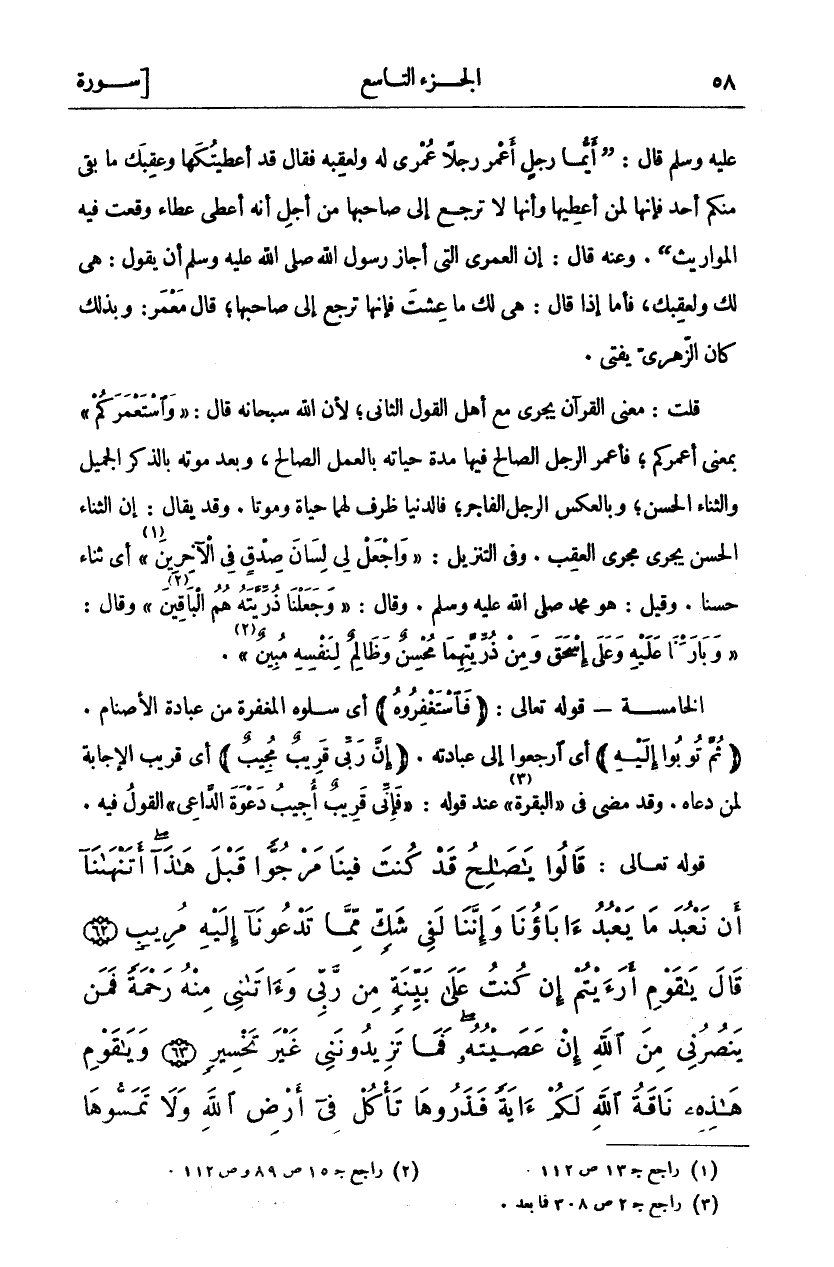 ٥٨ الجـزء التاسع [ســورة
عليه وسلم قال : ”أَيُّمـا رجلٍ أَعْمر رجلًا عُمْرى له ولعقبه فقال قد أعطيتُكَها وعقِبَك ما بقى
منكم أحد فإنها لمن أعطِيها وأنها لا ترجـع إلى صاحبها من أجل أنه أعطى عطاء وقعت فيه
المواريث“ . وعنه قال : إن العمرى التى أجاز رسول الله صلى الله عليه وسلم أن يقول : هى
لك ولعقِبك، فأما إذا قال : هى لك ما عِشتَ فإنها ترجع إلى صاحبها؛ قال مَعْمَر: وبذلك
كان الزّهرىّ يفتى .
قلت : معنى القرآن يجرى مع أهل القول الثانى؛ لأن الله سبحانه قال : « وَٱسْتَعْمَرَكُمْ »
بمعنى أعمركم ؛ فأعمر الرجل الصالح فيها مدة حياته بالعمل الصالح ، وبعد موته بالذكر الجميل
والثناء الحسن؛ وبالعكس الرجل الفاجر؛ فالدنيا ظرف لهما حياة وموتا . وقد يقال : إن الثناء
الحسن يجرى مجرى العقِب . وفى التنزيل : « وَاجْعَلْ لِي لِسَانَ صِدْقٍ فِي الْآخِرِينَ(١) » أى ثناء
حسنا . وقيل : هو محمد صلى الله عليه وسلم . وقال : « وَجَعَلْنَا ذُرِّيَّتَهُ هُمُ الْبَاقِينَ(٢) » وقال :
« وَبَارَكْنَا عَلَيْهِ وَعَلَى إِسْحَقَ وَمِنْ ذُرِّيَّتِهِمَا مُحْسِنٌ وَظَالِمٌ لِنَفْسِهِ مُبِينٌ(٢) » .
الخامســة — قوله تعالى : ﴿ فَٱسْتَغْفِرُوهُ ﴾ أى سـلوه المغفرة من عبادة الأصنام .
﴿ ثُمَّ تُوبُوا إِلَيْـهِ ﴾ أى ٱرجعوا إلى عبادته . ﴿ إِنَّ رَبِّى قَرِيبٌ مُجِيبٌ ﴾ أى قريب الإجابة
لمن دعاه . وقد مضى فى «البقرة» عند قوله : «فَإِنِّى قَرِيبٌ أُجِيبُ دَعْوَةَ الدَّاعِى(٣)» القولُ فيه .
قوله تعـالى : قَالُوا يَـٰصَـٰلِحُ قَدْ كُنتَ فِينَا مَرْجُوًّا قَبْلَ هَـٰذَآ أَتَنْهَـٰنَآ
أَن نَّعْبُدَ مَا يَعْبُدُ ءَابَآؤُنَا وَإِنَّنَا لَفِى شَكٍّ مِّمَّا تَدْعُونَآ إِلَيْهِ مُرِيبٍ ﴿٦٢﴾
قَالَ يَـٰقَوْمِ أَرَءَيْتُمْ إِن كُنتُ عَلَىٰ بَيِّنَةٍ مِّن رَّبِّى وَءَاتَـٰنِى مِنْهُ رَحْمَةً فَمَن
يَنصُرُنِى مِنَ ٱللَّهِ إِنْ عَصَيْتُهُۥ فَمَا تَزِيدُونَنِى غَيْرَ تَخْسِيرٍ ﴿٦٣﴾ وَيَـٰقَوْمِ
هَـٰذِهِۦ نَاقَةُ ٱللَّهِ لَكُمْ ءَايَةً فَذَرُوهَا تَأْكُلْ فِىٓ أَرْضِ ٱللَّهِ وَلَا تَمَسُّوهَا
(١) راجع جـ ١٣ ص ١١٢ . (٢) راجع جـ ١٥ ص ٨٩ و ص ١١٢ .
(٣) راجع جـ ٢ ص ٣٠٨ فما بعد .